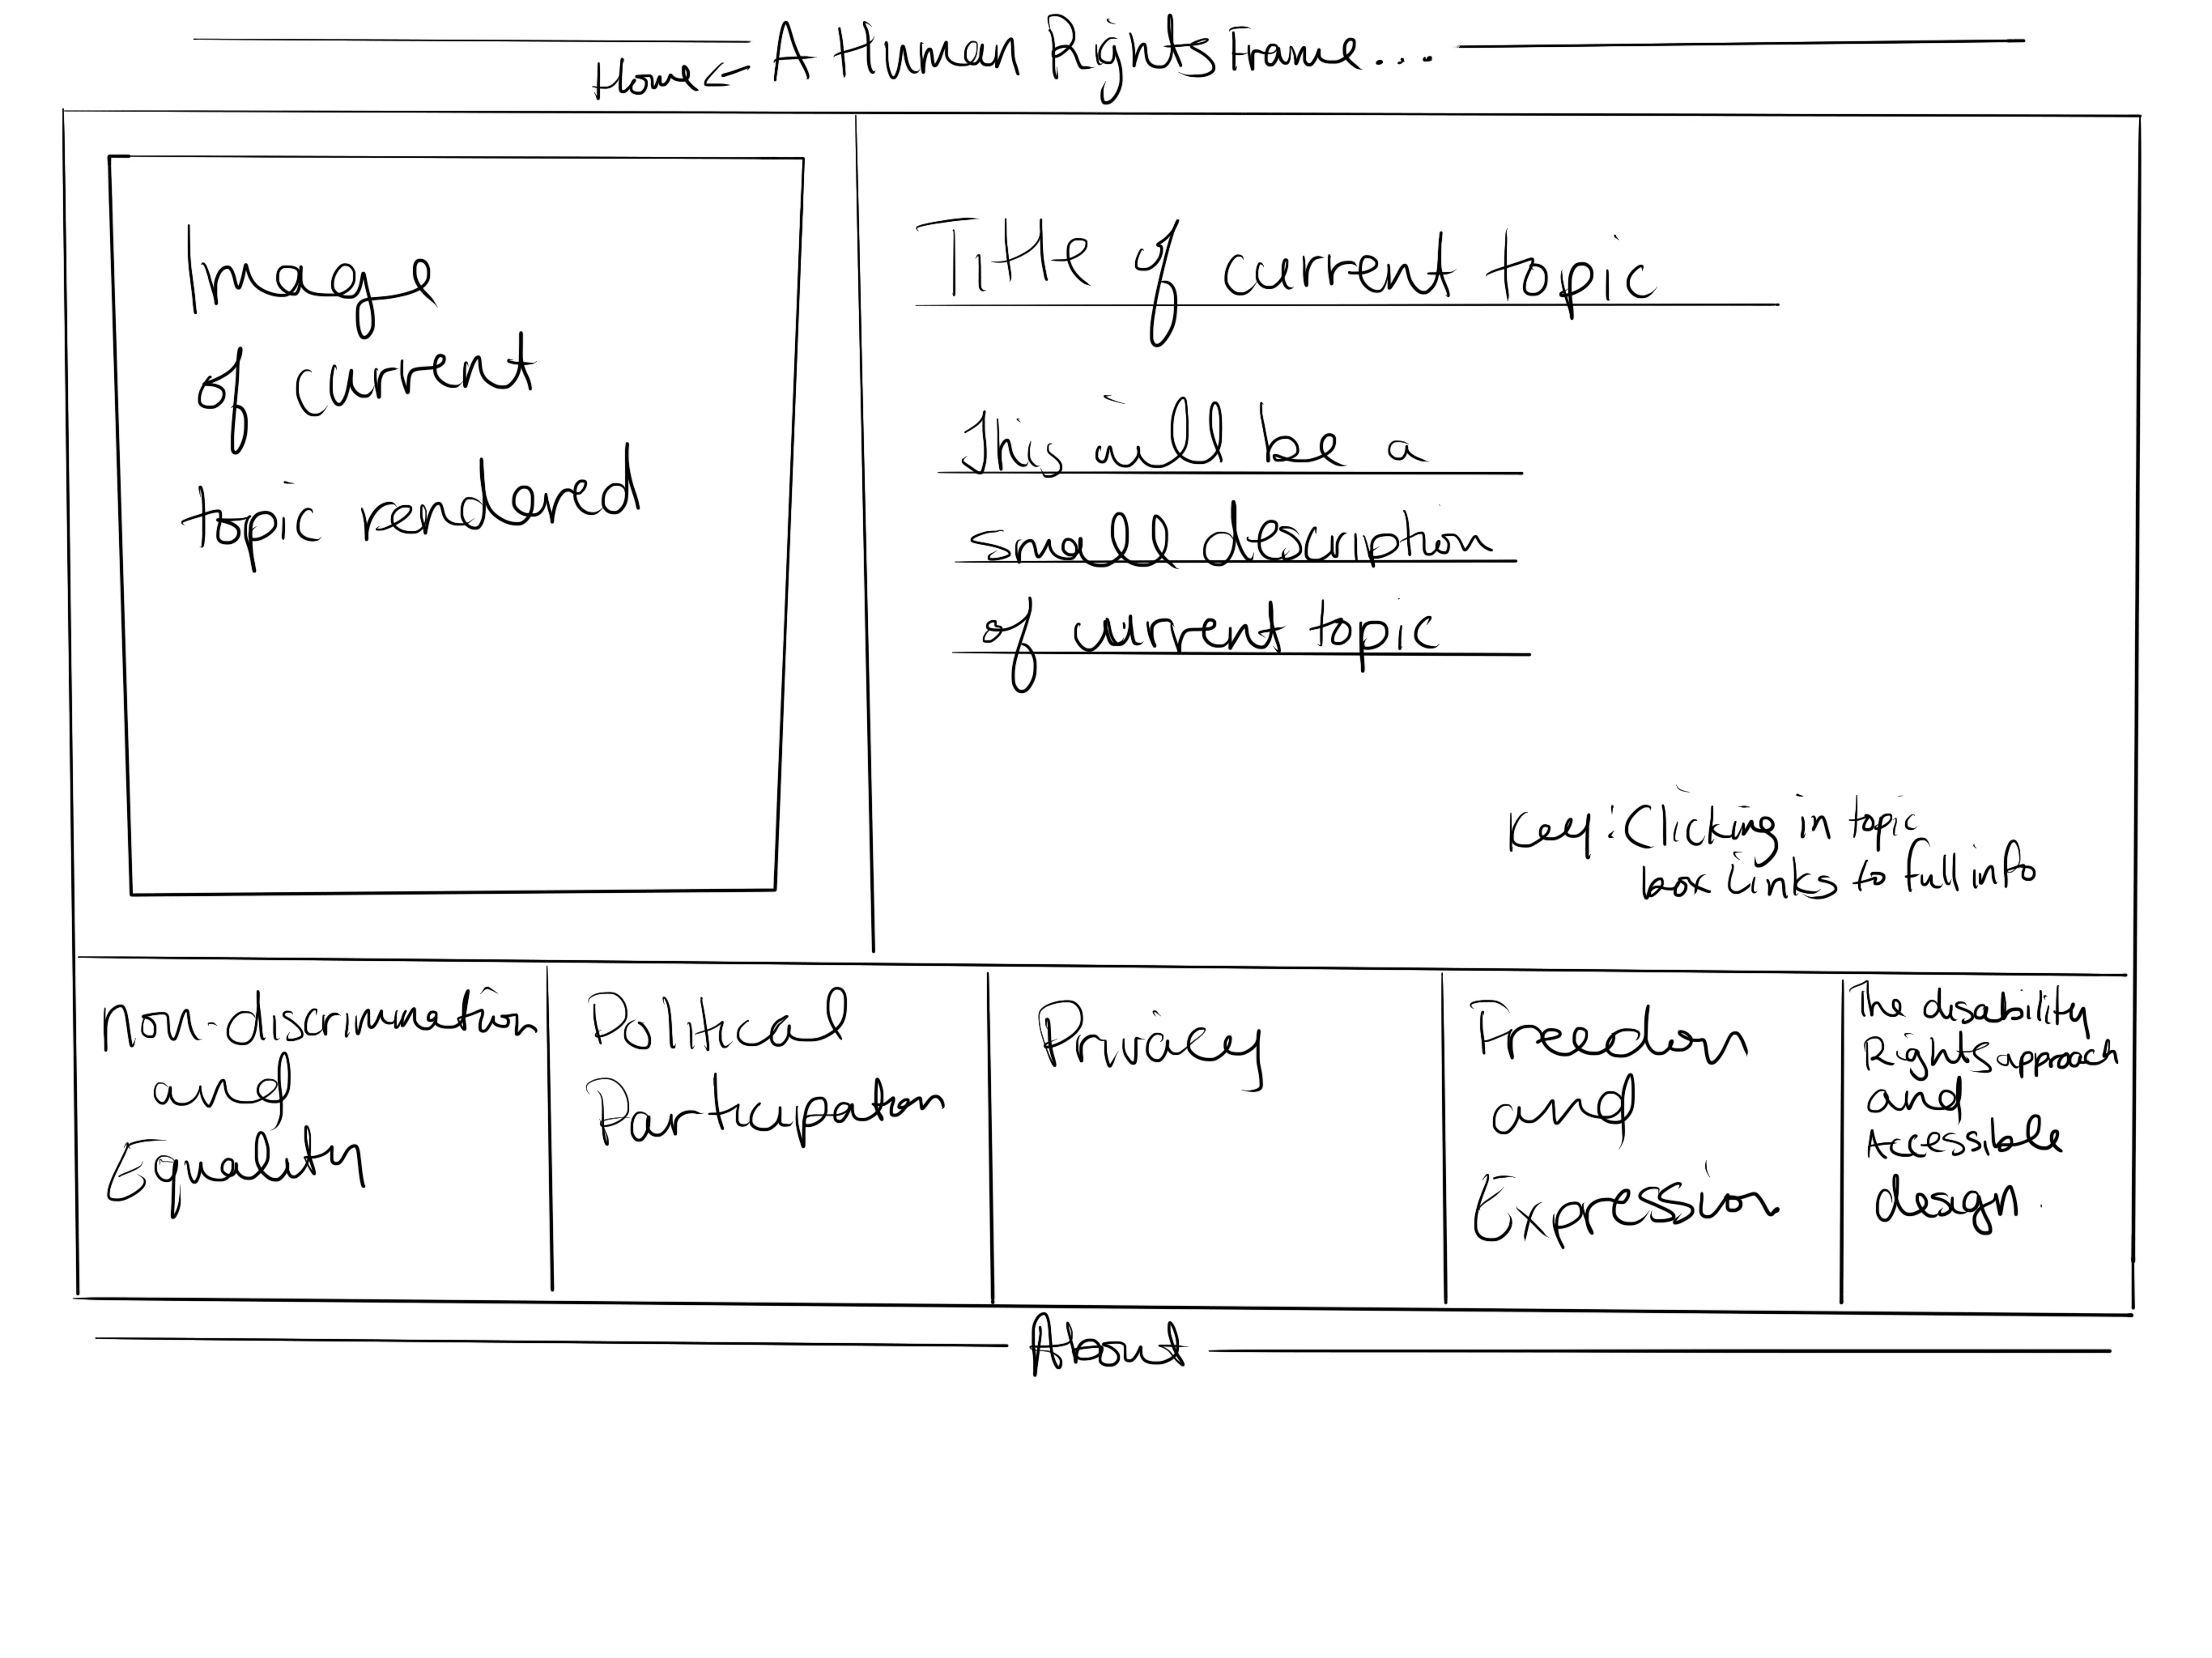 A Human Rights Frame...
Home ←
Image
of current
topic rendered
Title of current topic
This will be a
small description
of current topic
Key: Clicking in topic
box Links to full info
Non-discrimination
and
Equality
Political
Participation
Privacy
Freedom
and
Expression
The disability
Rights approach
and
Accessible
design.
About